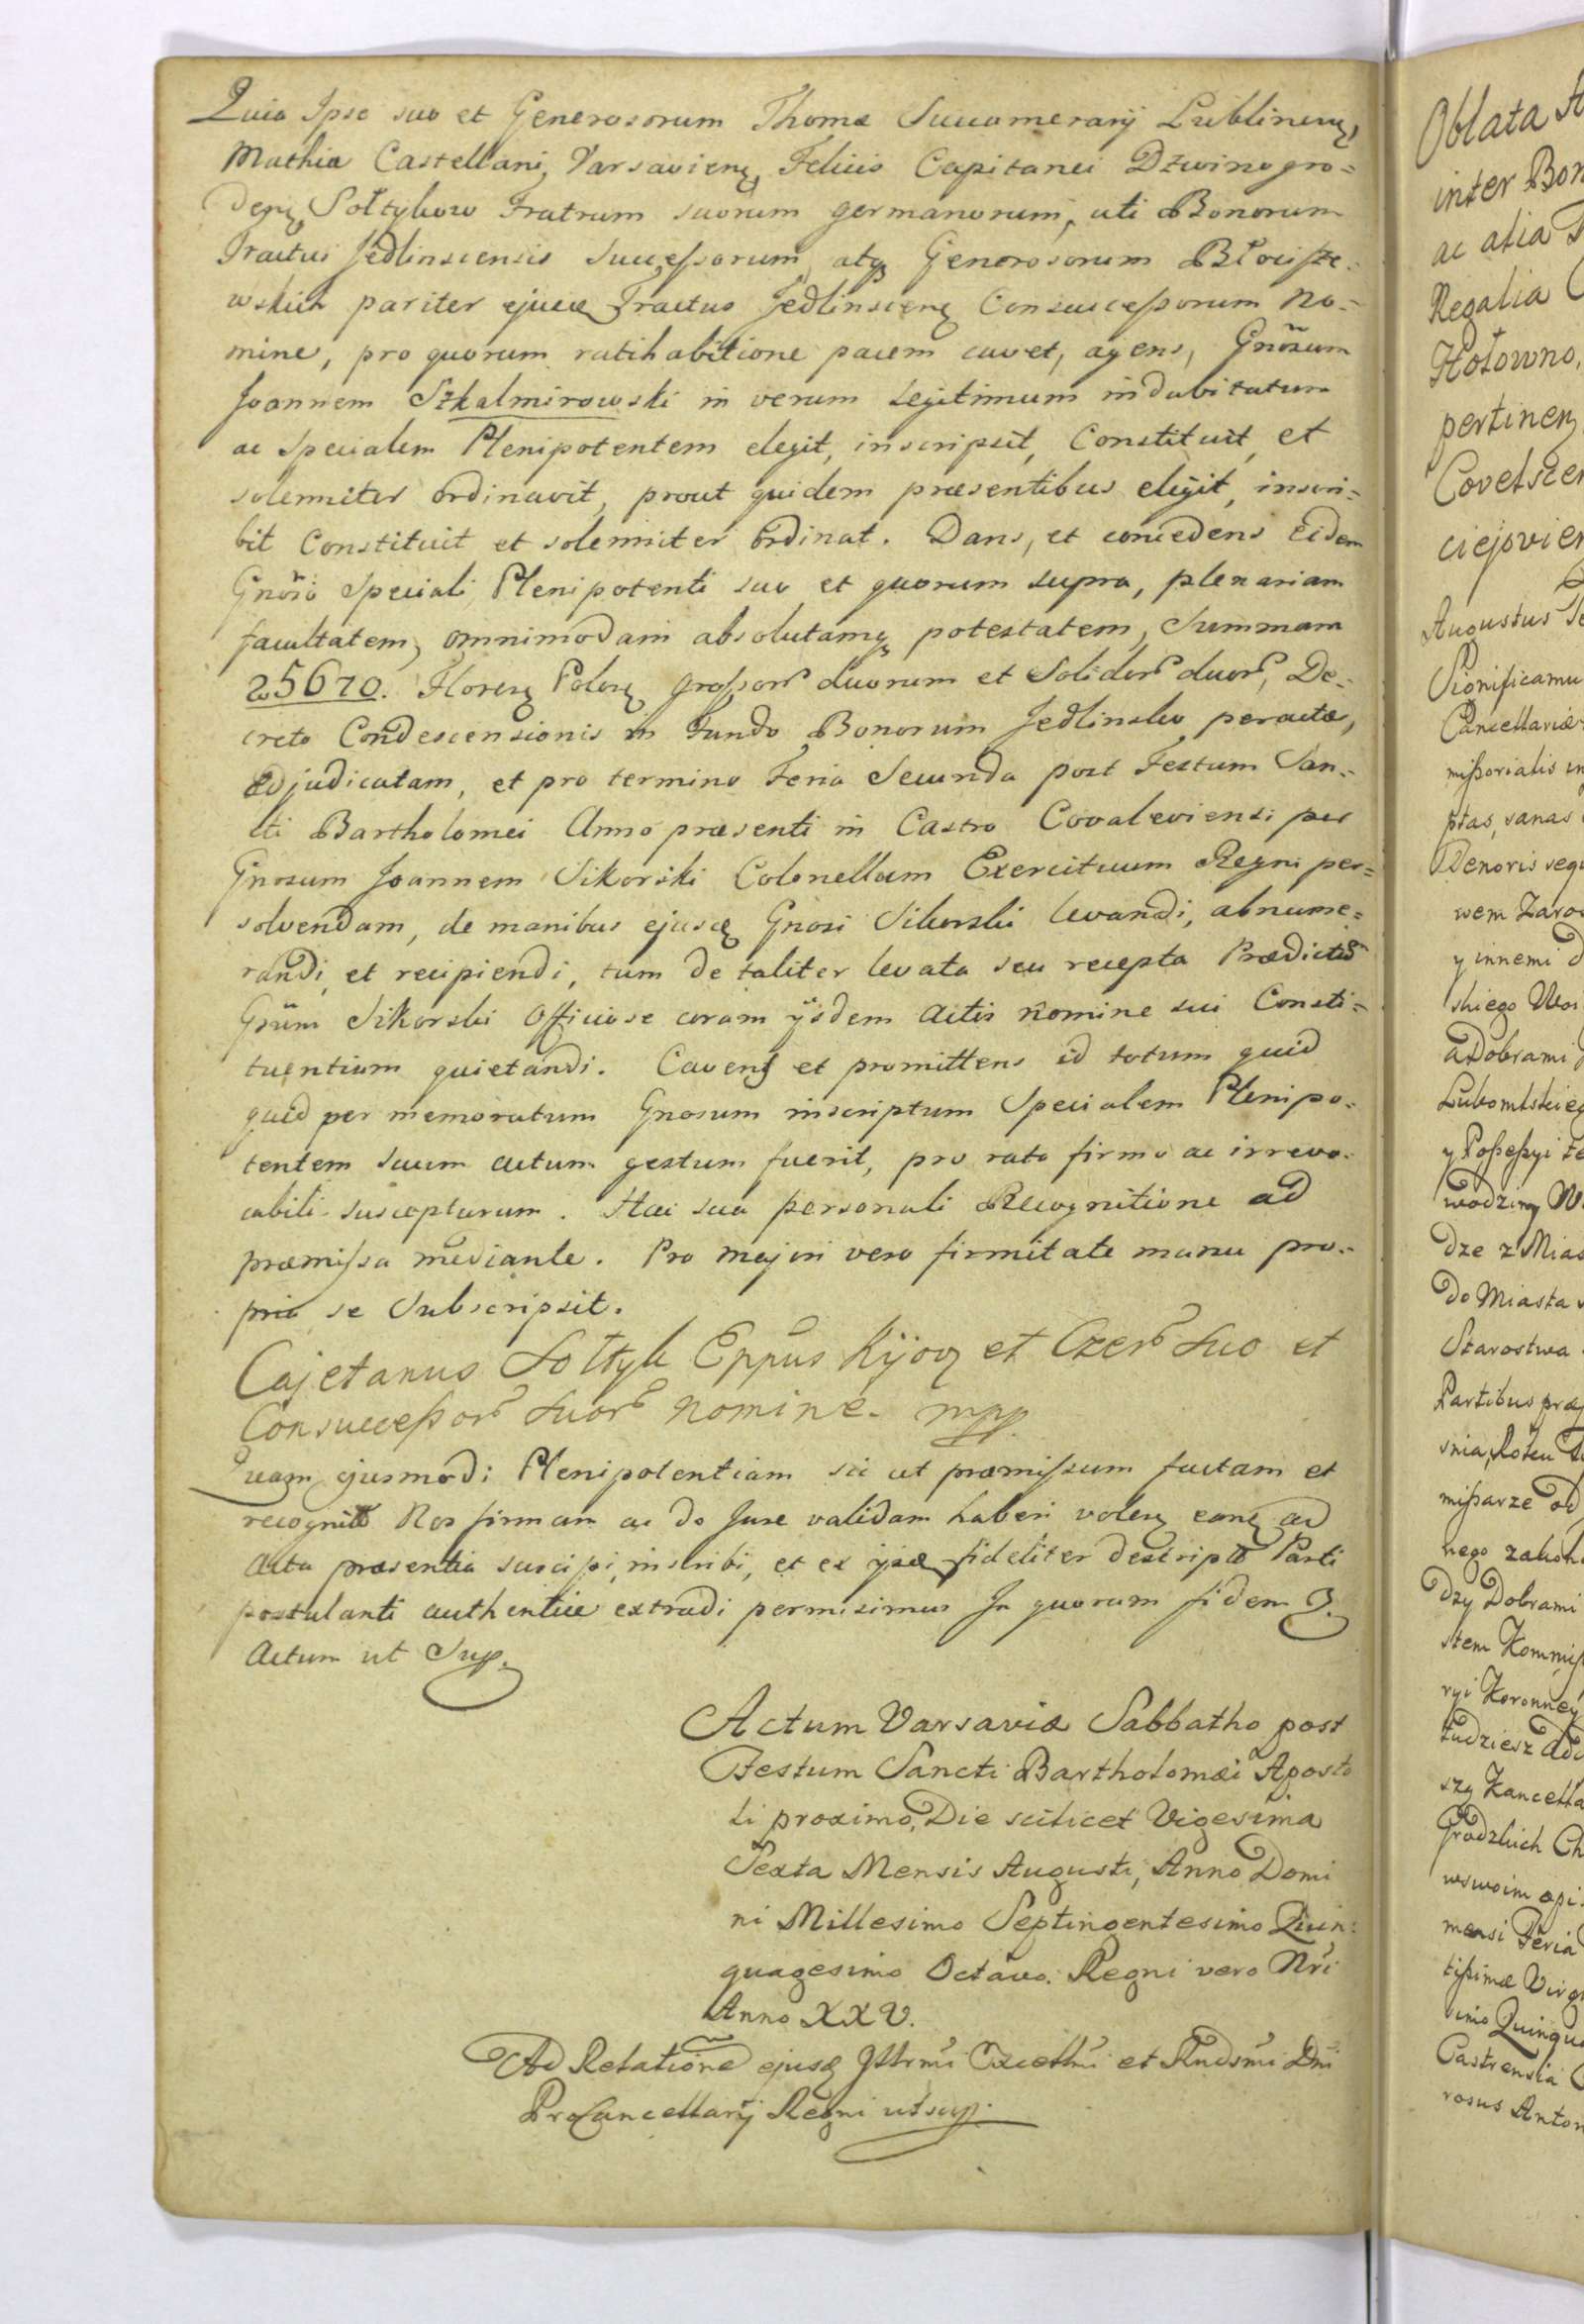 Quia Ipse suo et Generosorum Thomæ Succamerarij Lublinenꝫ,
Mathiæ Castellani, Varsavienꝫ, Felicis Capitanei Dzwinogro=
denꝫ Sołtykow Fratrum suorum germanorum, uti Bonorum
Tractus Jedlinscensis Successorum, atqꝫ Generosorum Błocisze=
wskich pariter ejusdꝫ Tractus Jedlinscenꝫ Consuccessorum No=
mine, pro quorum ratihabitione pacem cavet, agens, Gnõsum
Joannem Szkalmirowski in verum legitimum indubitatum
ac specialem Plenipotentem elegit, inscripsit, Constituit, et
solenniter ordinavit, prout quidem præsentibus eligit, inscri=
bit Constituit et solenniter ordinat. Dans, et concedens Eidem
Gnõso speciali Plenipotenti suo et quorum supra, plenariam
facultatem, omnimodam absolutamqꝫ potestatem, Summam
25670. Florenꝫ Polonꝫ grossorũ duorum et Solidorũ duorũ, De=
creto Condescensionis in Fundo Bonorum Jedlinsko peractæ,
adjudicatam, et pro termino Feria Secunda post Festum San=
cti Bartholomei Anno præsenti in Castro Covaleviensi per
Gnosum Joannem Sikorski Colonellum Exercituum Regni per=
solvendam, de manibus ejusdꝫ Gnosi Sikorski levandi, abnume=
randi, et recipiendi, tum de taliter levata seu recepta Prædictũ
Gnũm Sikorski Officiose coram ijsdem Actis nomine sui Consti=
tuentium quietandi. Cavens et promittens id totum quid
quid per memoratum Gnosum inscriptum Specialem Plenipo=
tentem suum actum gestum fuerit, pro rato firmo ac irrevo=
cabili suscepturum. Hac sua personali Recognitione ad
præmissa mediante. Pro majori vero firmitate manu pro=
pria se Subscripsit.
Cajetanus Sołtyk Eppũs Kijoꝫ et Czerꝫ Suo et
Consuccessorũ Suorũ nomine. mpp.
Quam ejusmodi Plenipotentiam sic ut præmissum factam et
recognitã Nos firmam ac de Jure validam haberi volenꝫ eamꝫ ad
Acta præsentia suscipi, inscribi, et ex ijsdꝫ fideliter descriptã Parti
postulanti authentice extradi permisimus In quorum fidem &.
Actum ut Sup.
Actum Varsaviæ Sabbatho post
Festum Sancti Bartholomæi Aposto
li proximo, Die scilicet Vigesima
Sexta Mensis Augusti, Anno Domi
ni Millesimo Septingentesimo Quin=
quagesimo Octavo. Regni vero Nri
Anno XXV.
Ad Relatione ejusdꝫ Illrmi Excellmi et Rndsmi Dni
ProCancellarij Regni ut sup.
Oblata
inter Bon
ac alia
Regalia
Hołowno,
pertinenꝫ
Covelscen
ciejovien
Augustus
Significamu
Cancellariæ
missorialis in
ptas, sanas
Tenoris sequ
wem Zaro
y innemi d
skiego Wo
a Dobrami
Lubomlskieg
y Possessyi
wodziny
dze z Mias
do Miasta
Starostwa
Partibus præ
snia, Roku
missarze od
nego zakon
dzy Dobrami
stem Kommiss
ryi Koronney
tudziesz
szy Kancella
Grodzkich Ch
wswoim
mensi Feria
tissimæ Virg
simo Quinqu
Castrensia
rosus Anton